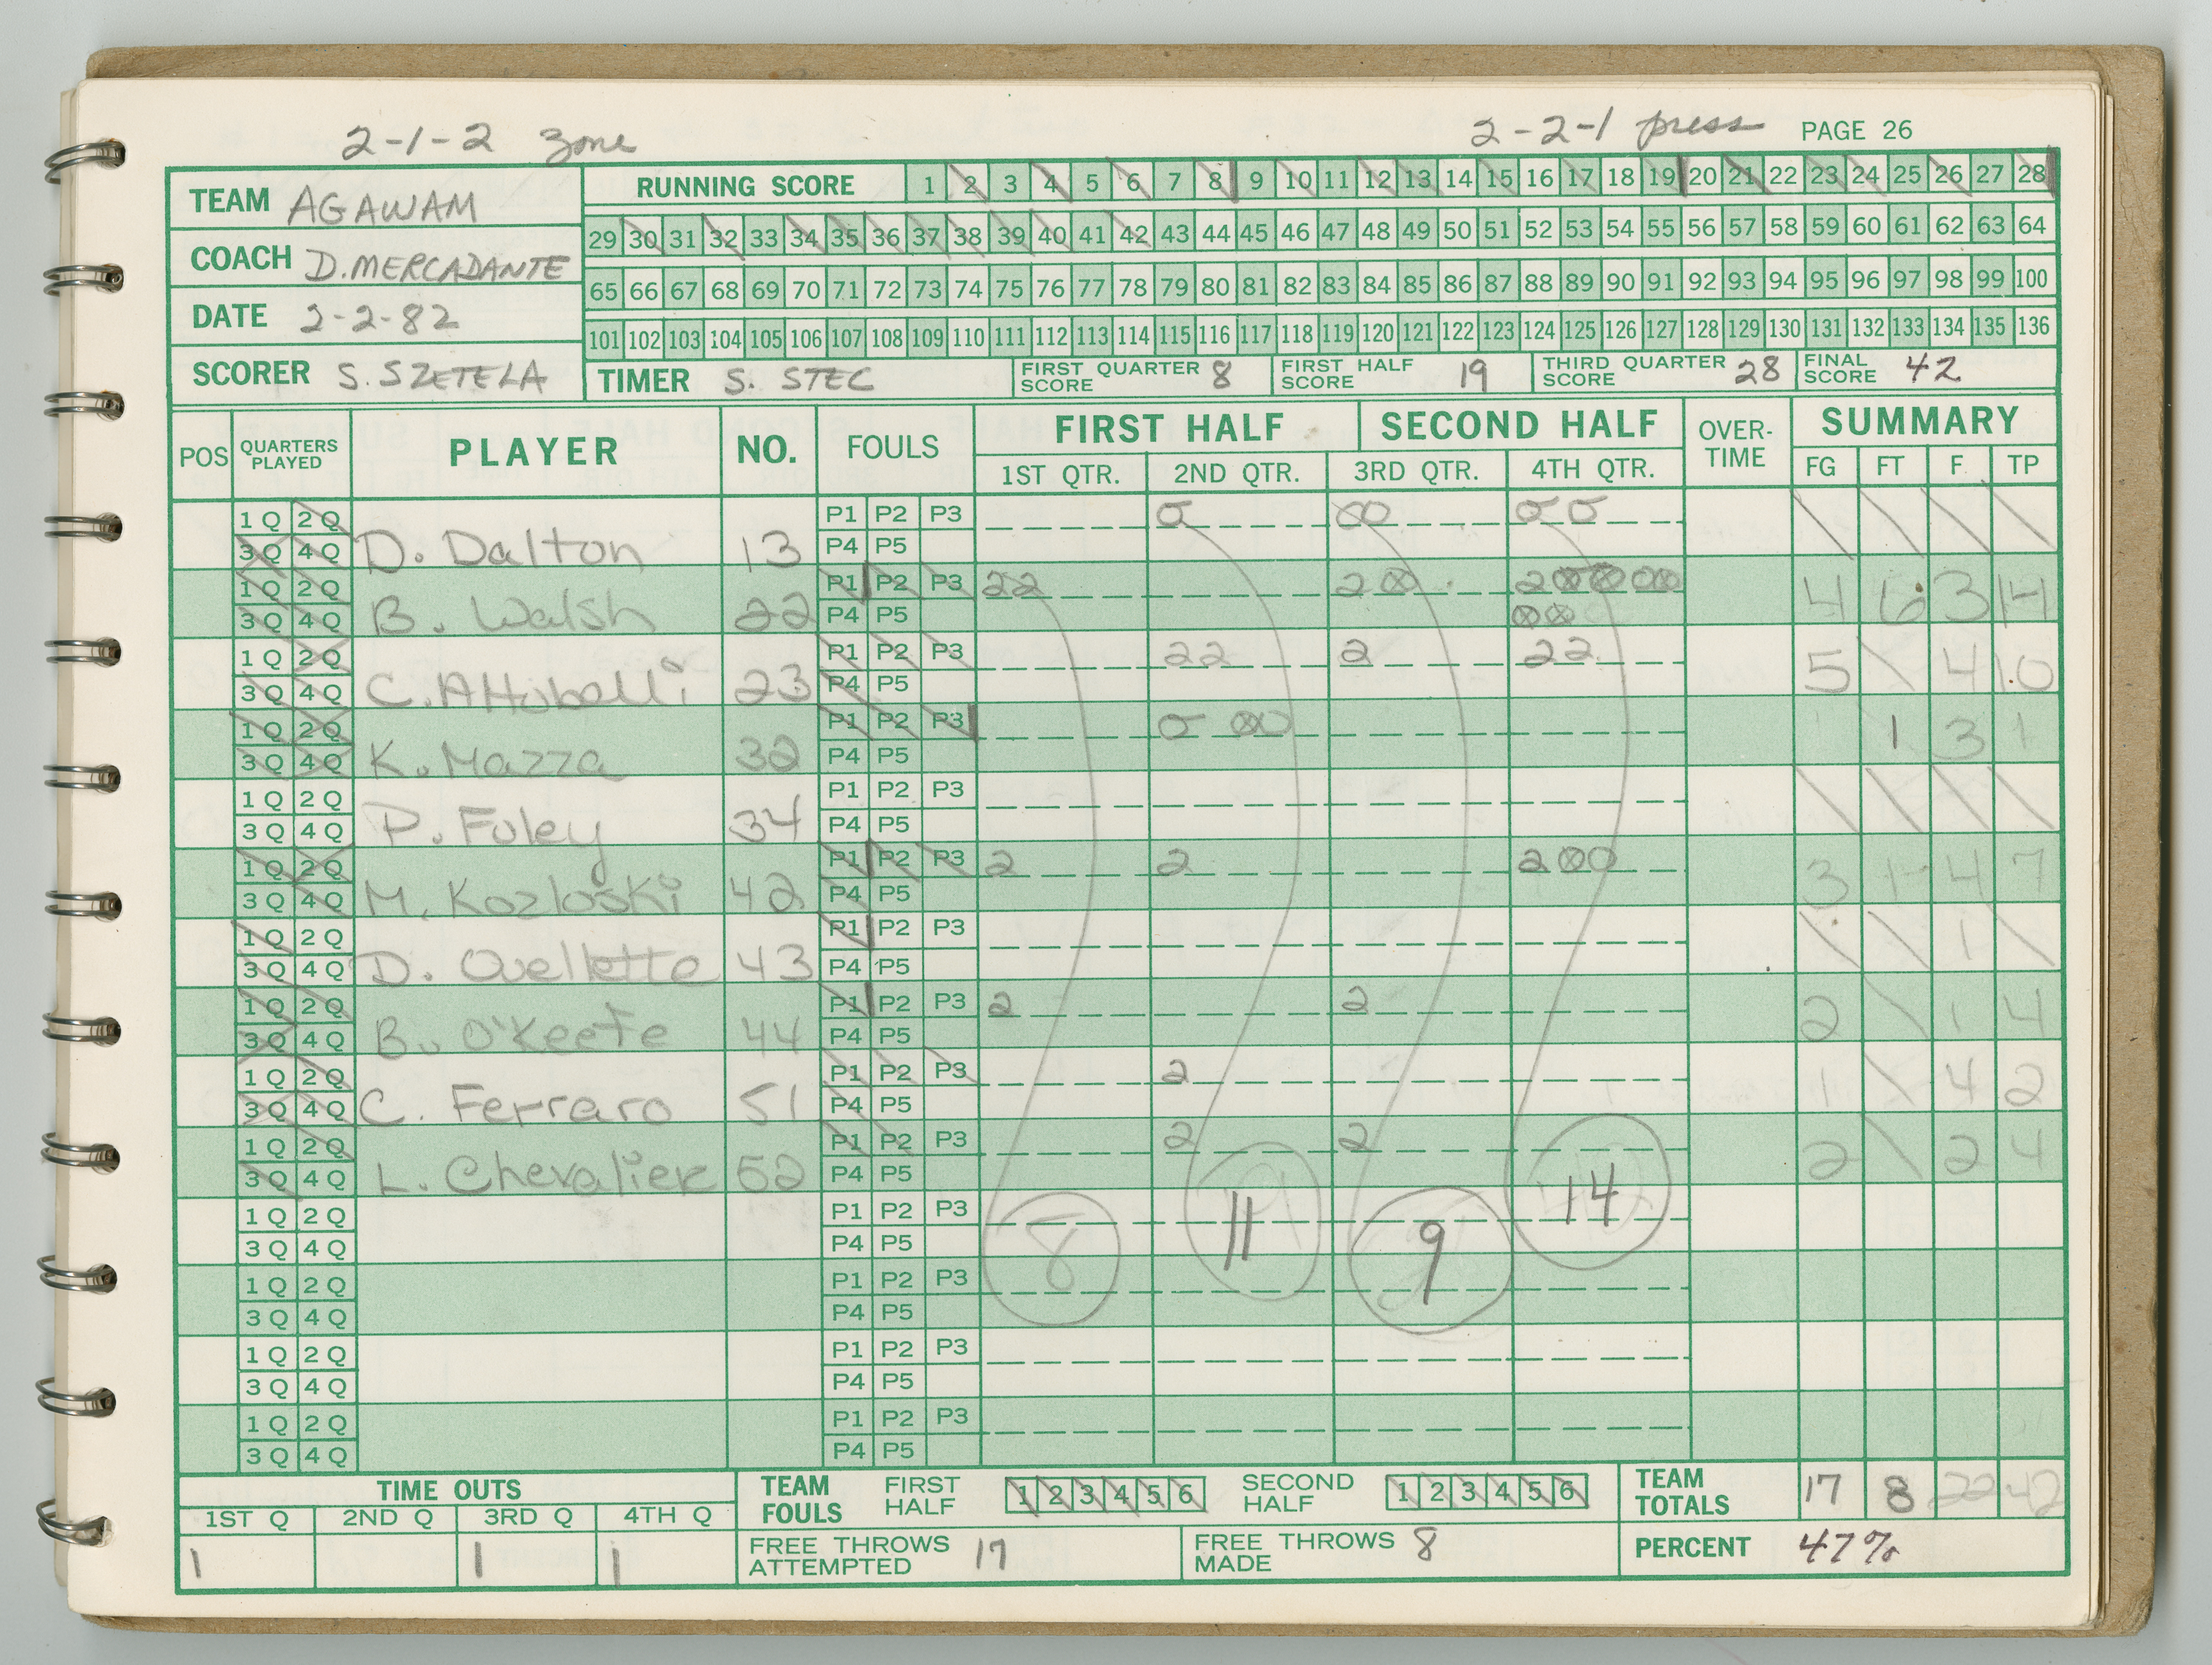 2-1-2 zone
2-2-1 press PAGE 26
TEAM AGAWAM
COACH D. MERCADANTE
DATE 2-2-82
SCORER S. SZETELA
RUNNING SCORE 1 2 3 4 5 6 7 8 9 10 11 12 13 14 15 16 17 18 19 20 21 22 23 24 25 26 27 28
29 30 31 32 33 34 35 36 37 38 39 40 41 42 43 44 45 46 47 48 49 50 51 52 53 54 55 56 57 58 59 60 61 62 63 64
65 66 67 68 69 70 71 72 73 74 75 76 77 78 79 80 81 82 83 84 85 86 87 88 89 90 91 92 93 94 95 96 97 98 99 100
101 102 103 104 105 106 107 108 109 110 111 112 113 114 115 116 117 118 119 120 121 122 123 124 125 126 127 128 129 130 131 132 133 134 135 136
TIMER S. STEC FIRST QUARTER SCORE 8 FIRST HALF SCORE 19 THIRD QUARTER SCORE 28 FINAL SCORE 42
POS QUARTERS PLAYED PLAYER NO. FOULS FIRST HALF SECOND HALF OVER-TIME SUMMARY
1ST QTR. 2ND QTR. 3RD QTR. 4TH QTR. FG FT F. TP
1 Q 2 Q P1 P2 P3
3 Q 4 Q D. Dalton 13 P4 P5
1 Q 2 Q P1 P2 P3 22 2 2
3 Q 4 Q B. Walsh 22 P4 P5 4 6 3 14
1 Q 2 Q P1 P2 P3 22 2 22
3 Q 4 Q C. Attobelli 23 P4 P5 5 4 10
1 Q 2 Q P1 P2 P3
3 Q 4 Q K. Mazza 32 P4 P5 1 3 1
1 Q 2 Q P1 P2 P3
3 Q 4 Q P. Foley 34 P4 P5
1 Q 2 Q P1 P2 P3 2 2 2
3 Q 4 Q M. Kozloski 42 P4 P5 3 1 4 7
1 Q 2 Q P1 P2 P3
3 Q 4 Q D. Ouellette 43 P4 P5 1
1 Q 2 Q P1 P2 P3 2 2
3 Q 4 Q B. O'Keefe 44 P4 P5 2 1 4
1 Q 2 Q P1 P2 P3 2
3 Q 4 Q C. Ferraro 51 P4 P5 1 4 2
1 Q 2 Q P1 P2 P3 2 2
3 Q 4 Q L. Chevalier 52 P4 P5 2 2 4
1 Q 2 Q P1 P2 P3 8 11 9 14
3 Q 4 Q P4 P5
1 Q 2 Q P1 P2 P3
3 Q 4 Q P4 P5
1 Q 2 Q P1 P2 P3
3 Q 4 Q P4 P5
1 Q 2 Q P1 P2 P3
3 Q 4 Q P4 P5
TIME OUTS
1ST Q 2ND Q 3RD Q 4TH Q
1 1 1
TEAM FOULS FIRST HALF 1 2 3 4 5 6 SECOND HALF 1 2 3 4 5 6
TEAM TOTALS 17 8 22 42
FREE THROWS ATTEMPTED 17 FREE THROWS MADE 8
PERCENT 47%